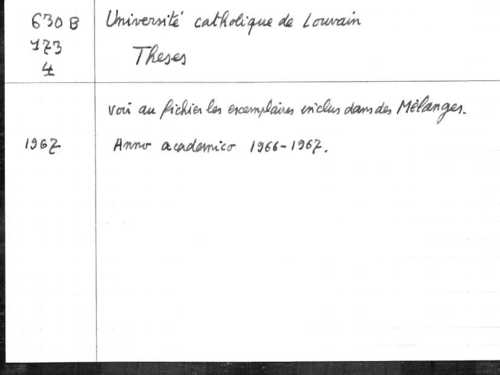 630 B Université catholique de Louvain
173 Theses
4
voir au fichier les exemplaires inclus dans des Mélanges.
1967 Anno academico 1966-1967.